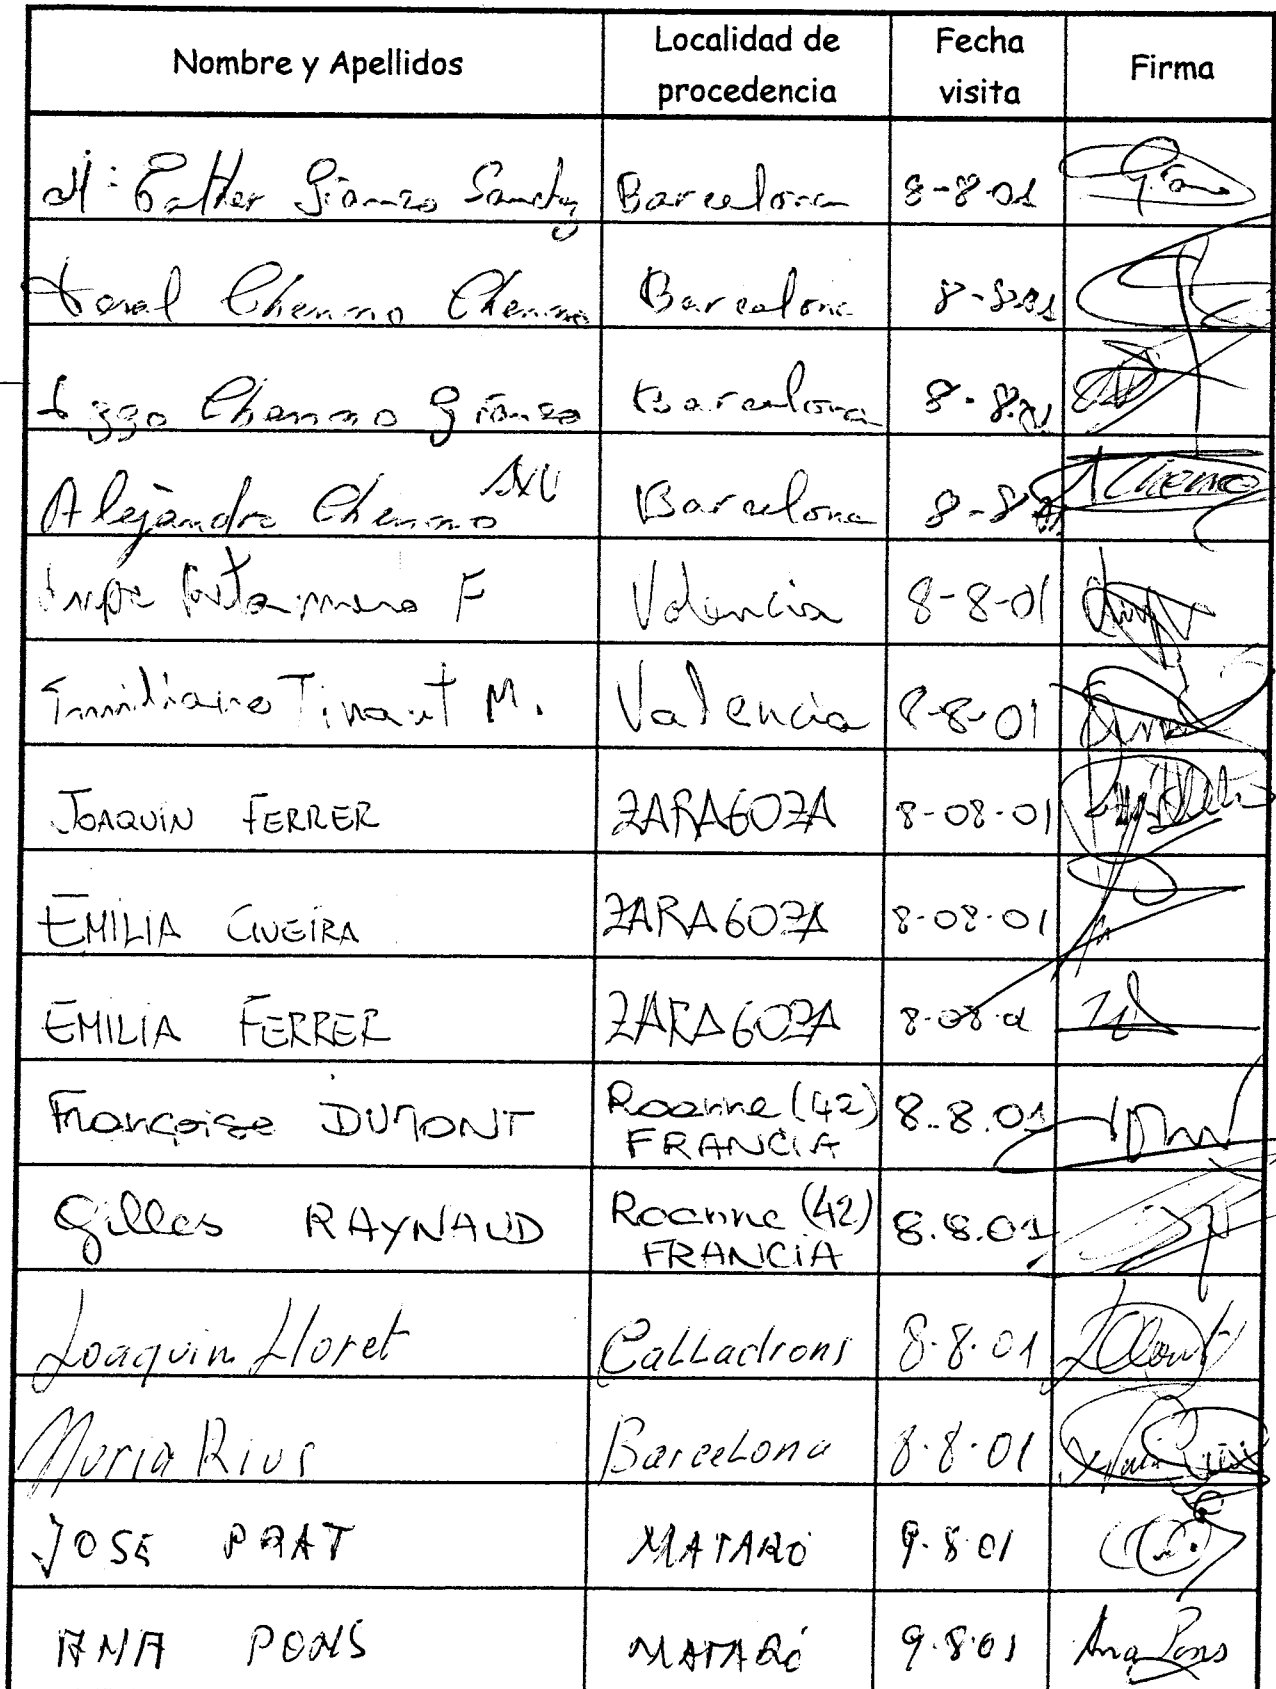 Nombre y Apellidos Localidad de procedencia Fecha visita Firma
Mª Esther Sanchez Barcelona 8-8-01
Chemmo Barcelona 8-8-01
Chemmo Barcelona 8-8-01
Alejandro Chemmo Barcelona 8-8-01 Chemmo
F Valencia 8-8-01
Emiliano Tinaut M. Valencia 8-8-01
JOAQUIN FERRER ZARAGOZA 8-08-01
EMILIA CIVEIRA ZARAGOZA 8-08-01
EMILIA FERRER ZARAGOZA 8-08-01
Françoise DUMONT Roanne (42) FRANCIA 8.8.01
Gilles RAYNAUD Roanne (42) FRANCIA 8.8.01
Joaquim Lloret Calladrons 8.8.01
Nuria Rius Barcelona 8.8.01
JOSE PRAT MATARÓ 9.8.01
ANA PONS MATARÓ 9.8.01 Ana Pons